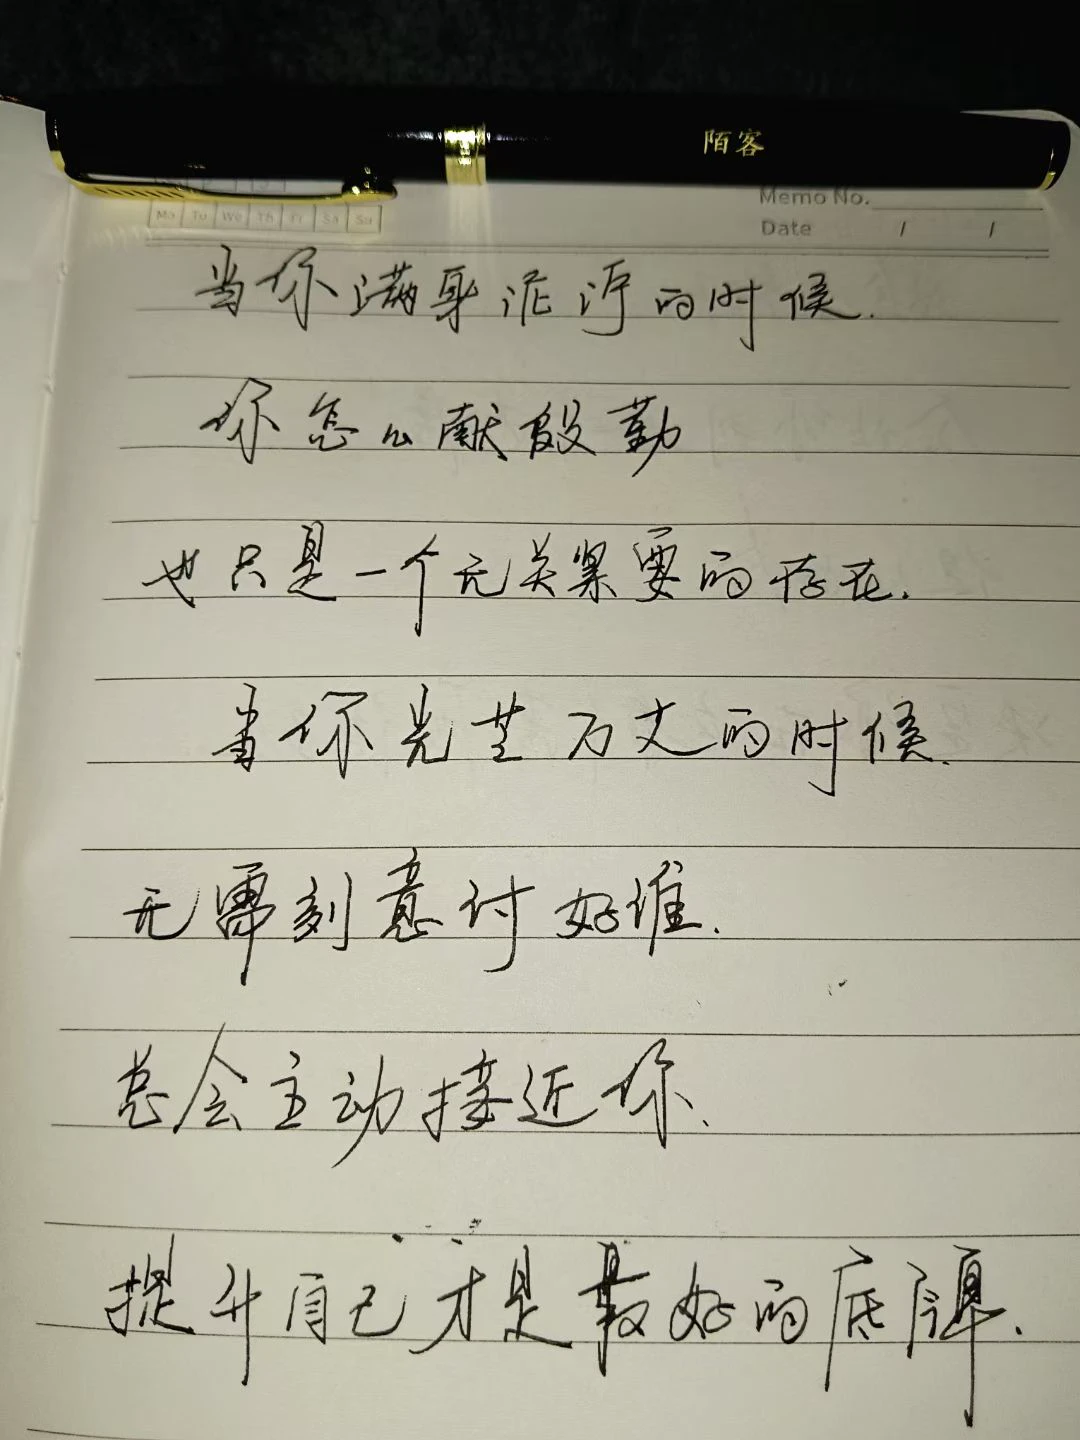 陌客
Memo No.
Mo Tu We Th Fr Sa Su
Date / /
当你满身泥泞的时候.
你怎么献殷勤
也只是一个无关紧要的存在.
当你光芒万丈的时候.
无需刻意讨好谁.
总会主动接近你.
提升自己才是最好的底牌.